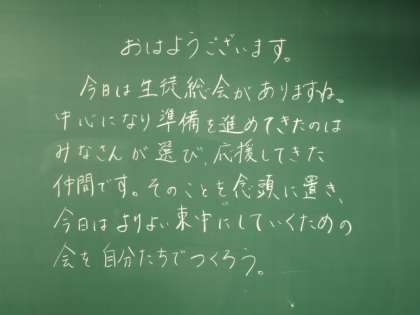 おはようございます。
今日は生徒総会がありますね。
中心になり準備を進めてきたのは
みなさんが選び、応援してきた
仲間です。そのことを念頭に置き、
今日はよりよい東中にしていくための
会を自分たちでつくろう。